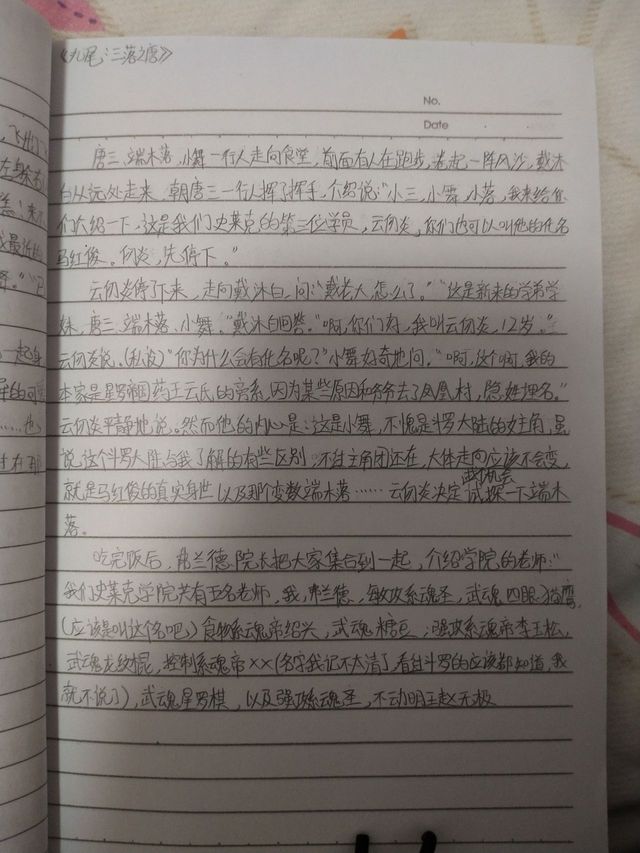 《九尾：三落之唐》
No.
Date
唐三、端木落、小舞一行人走向食堂，前面有人在跑步，卷起一阵风沙，戴沐
白从远处走来，朝唐三一行人挥了挥手，介绍说：“小三，小舞，小落，我来给你
们介绍一下，这是我们史莱克的第三位学员，云仞炎，你们也可以叫他的化名
马红俊。仞炎，先停下。”
云仞炎停了下来，走向戴沐白，问：“戴老大，怎么了。”“这是新来的学弟学
妹，唐三、端木落、小舞。”戴沐白回答。“啊，你们好，我叫云仞炎，12岁。”
云仞炎说。（私设）“你为什么会有化名呢？”小舞好奇地问。“啊，这个啊，我的
本家是星罗帝国药王云氏的旁系，因为某些原因和爷爷去了凤凰村，隐姓埋名。”
云仞炎平静地说。然而他的内心是：这是小舞，不愧是斗罗大陆的女主角，虽
说这个斗罗大陆与我了解的有些区别，不过主角团还在，大体走向应该不会变，
就是马红俊的真实身世以及那个变数端木落……云仞炎决定找机会试探一下端木
落。
吃完饭后，弗兰德院长把大家集合到一起，介绍学院的老师：“
我们史莱克学院共有五名老师，我，弗兰德，敏攻系魂圣，武魂四眼猫鹰，
（应该是叫这个名吧）食物系魂帝绍兴，武魂糖豆，强攻系魂帝李玉松，
武魂龙纹棍，控制系魂帝××（名字我记不太清了，看过斗罗的应该都知道，我
就不说了），武魂星罗棋，以及强攻系魂圣，不动明王赵无极